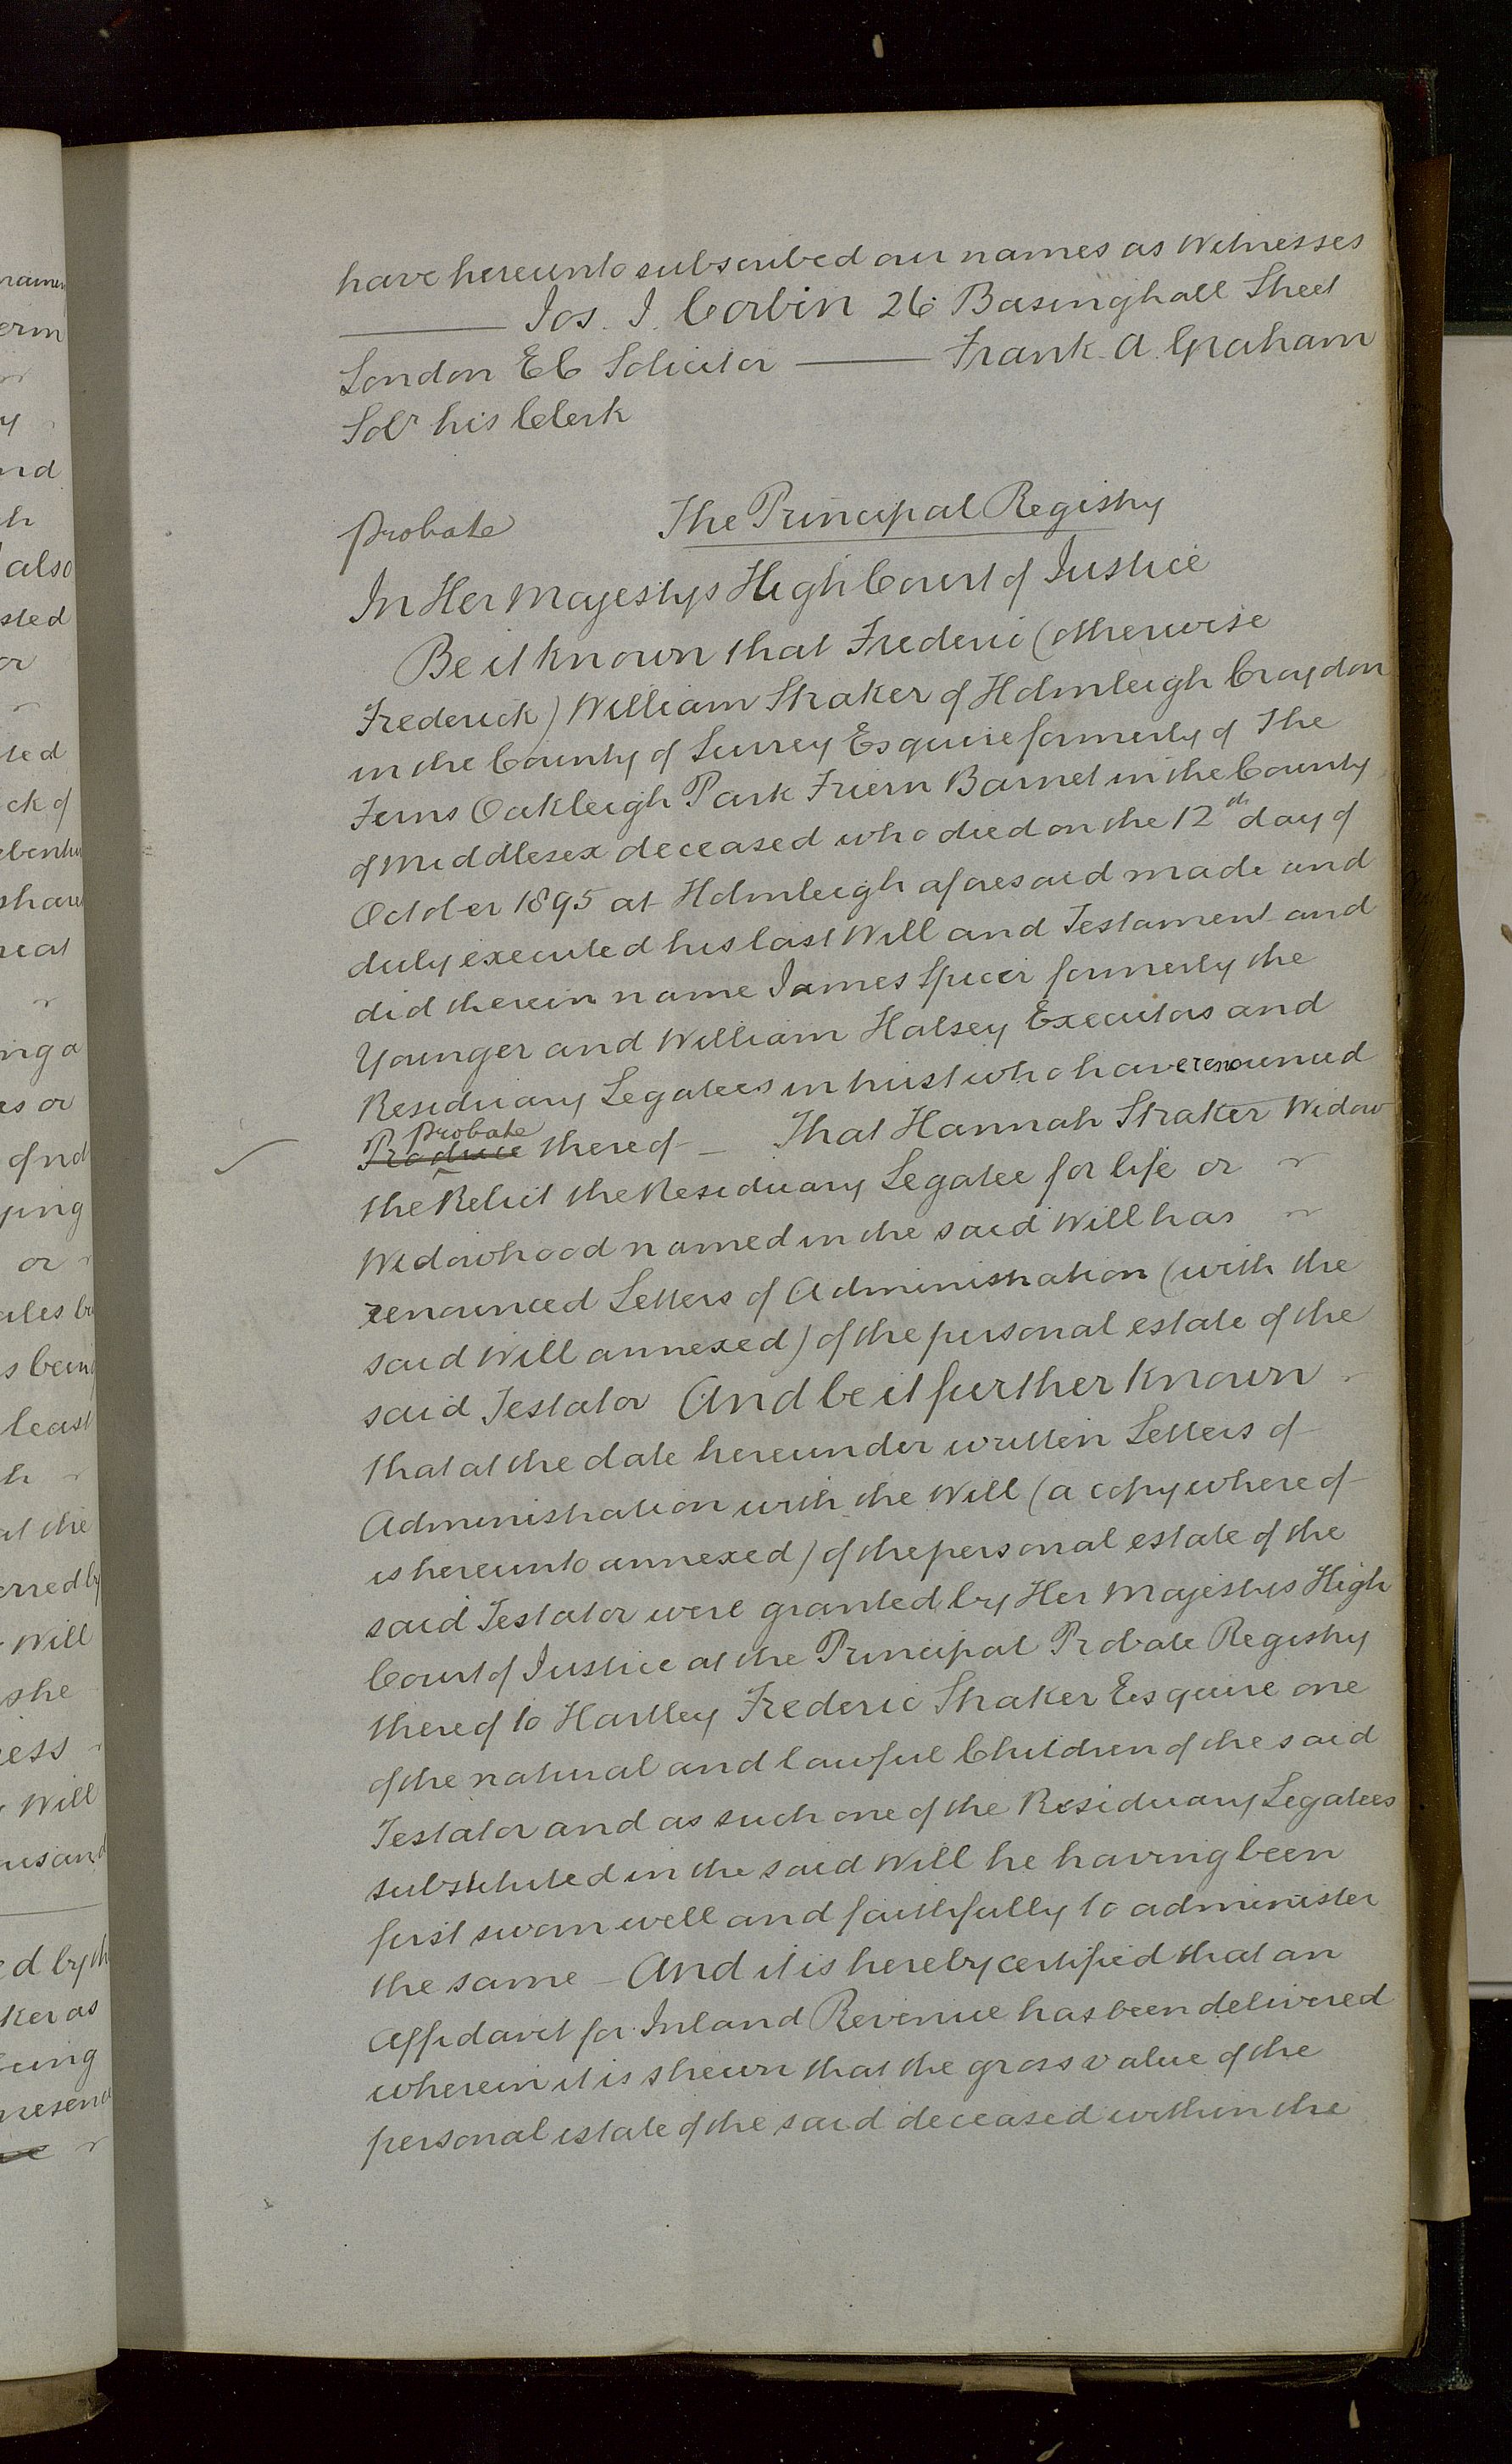 have hereunto subscribed our names as Witnesses
Jos. J. Corbin 26 Basinghall Street
London EC Solicitor — Frank A. Graham
Solr his Clerk
Probate The Principal Registry
In Her Majestys High Court of Justice
Be it known that Frederic (otherwise
Frederick) William Straker of Holmleigh Croydon
in the County of Surrey Esquire formerly of The
Ferns Oakleigh Park Friern Barnet in the County
of Middlesex deceased who died on the 12th day of
October 1895 at Holmleigh aforesaid made and
duly executed his last Will and Testament and
did therein name James Spicer formerly the
Younger and William Halsey Executors and
Residuary Legatees in trust who have renounced
Produce Probate thereof — That Hannah Straker Widow
the Relict the Residuary Legatee for life or
Widowhood named in the said Will has
renounced Letters of Administration (with the
said Will annexed) of the personal estate of the
said Testator And be it further known
that at the date hereunder written Letters of
Administration with the Will (a copy whereof
is hereunto annexed) of the personal estate of the
said Testator were granted by Her Majestys High
Court of Justice at the Principal Probate Registry
thereof to Hartley Frederic Straker Esquire one
of the natural and lawful Children of the said
Testator and as such one of the Residuary Legatees
substituted in the said Will he having been
first sworn well and faithfully to administer
the same — And it is hereby certified that an
Affidavit for Inland Revenue has been delivered
wherein it is shewn that the gross value of the
personal estate of the said deceased within the